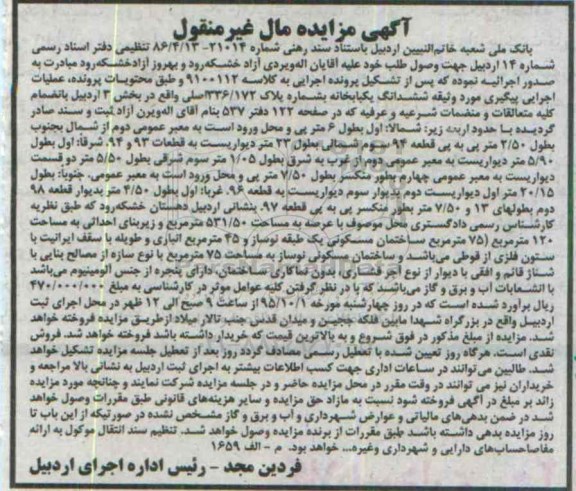 آگهی مزایده مال غیرمنقول
بانک ملی شعبه خاتم‌النبیین اردبیل باستناد سند رهنی شماره ۲۱۰۱۴-۸۶/۴/۱۳ تنظیمی دفتر اسناد رسمی
شماره ۱۴ اردبیل جهت وصول طلب خود علیه آقایان اله‌ویردی آزاد خشکه‌رود و بهروز آزادخشکه‌رود مبادرت به
صدور اجرائیه نموده که پس از تشکیل پرونده اجرایی به کلاسه ۹۱۰۰۱۱۲ و طبق محتویات پرونده، عملیات
اجرایی پیگیری مورد وثیقه ششدانگ یکبابخانه بشماره پلاک ۳۳۶/۱۷۲اصلی واقع در بخش ۳ اردبیل بانضمام
کلیه متعلقات و منضمات شرعیه و عرفیه که در صفحه ۱۲۲ دفتر ۵۳۷ بنام آقای اله‌ویرن آزاد ثبت و سند صادر
گردیده با حدود اربعه زیر: شمالا: اول بطول ۶ متر پی و محل ورود است به معبر عمومی دوم از شمال بجنوب
بطول ۲/۵۰ متر پی به پی قطعه ۹۴ سوم شمالی بطول ۲۳ متر دیواریست به قطعات ۹۳ و ۹۴. شرقا: اول بطول
۵/۹۰ متر دیواریست به معبر عمومی دوم از غرب به شرق بطول ۱/۰۵ متر سوم شرقی بطول ۵/۵۰ متر دو قسمت
دیواریست به معبر عمومی چهارم بطور منکسر بطول ۷/۵۰ متر پی و محل ورود است به معبر عمومی. جنوبا: بطول
۲۰/۱۵ متر اول دیواریست دوم بدیوار سوم دیواریست به قطعه ۹۶. غربا: اول بطول ۴/۵۰ متر بدیوار قطعه ۹۸
دوم بطولهای ۱۳ و ۷/۵۰ متر بطور منکسر پی به پی قطعه ۹۷. بنشانی اردبیل دهستان خشکه‌رود که طبق نظریه
کارشناس رسمی دادگستری محل موصوف با عرصه به مساحت ۵۳۱/۵۰ مترمربع و زیربنای احداثی به مساحت
۱۲۰ مترمربع (۷۵ مترمربع ساختمان مسکونی یک طبقه نوساز و ۴۵ مترمربع انباری و طویله با سقف ایرانیت با
ستون فلزی از قوطی می‌باشد و ساختمان مسکونی نوساز به مساحت ۷۵ مترمربع با نوع سازه از مصالح بنایی با
شناژ قائم و افقی با دیوار از نوع آجر فشاری، بدون نماکاری ساختمان، دارای پنجره از جنس آلومینیوم می‌باشد
با انشعابات آب و برق و گاز می‌باشند که با در نظر گرفتن کلیه عوامل موثر در کارشناسی به مبلغ ۴۷۰/۰۰۰/۰۰۰
ریال برآورد شده است که در روز چهارشنبه مورخه ۹۵/۱۰/۱ از ساعت ۹ صبح الی ۱۲ ظهر در محل اجرای ثبت
اردبیل واقع در بزرگراه شهدا مابین فلکه ججین و میدان قدس جنب تالار میلاد ازطریق مزایده فروخته خواهد
شد. مزایده از مبلغ مذکور در فوق شروع و به بالاترین قیمت که خریدار داشته باشد فروخته خواهد شد. فروش
نقدی است. هرگاه روز تعیین شده با تعطیل رسمی مصادف گردد روز بعد از تعطیل جلسه مزایده تشکیل خواهد
شد. طالبین می‌توانند در ساعات اداری جهت کسب اطلاعات بیشتر به اجرای ثبت اردبیل به نشانی بالا مراجعه و
خریداران نیز می توانند در وقت مقرر در محل مزایده حاضر و در جلسه مزایده شرکت نمایند و چنانچه مورد مزایده
زائد بر مبلغ در آگهی فروخته شود نسبت به مازاد حق مزایده و سایر هزینه‌های قانونی طبق مقررات وصول خواهد
شد در ضمن بدهی‌های مالیاتی و عوارض شهرداری و آب و برق و گاز مشخص نشده در صورتیکه از این باب تا
روز مزایده بدهی داشته باشد طبق مقررات از برنده مزایده وصول خواهد شد. تنظیم سند انتقال موکول به ارائه
مفاصاحساب‌های دارایی و شهرداری وغیره... خواهد بود. م - الف ۱۶۵۹
فردین مجد - رئیس اداره اجرای اردبیل